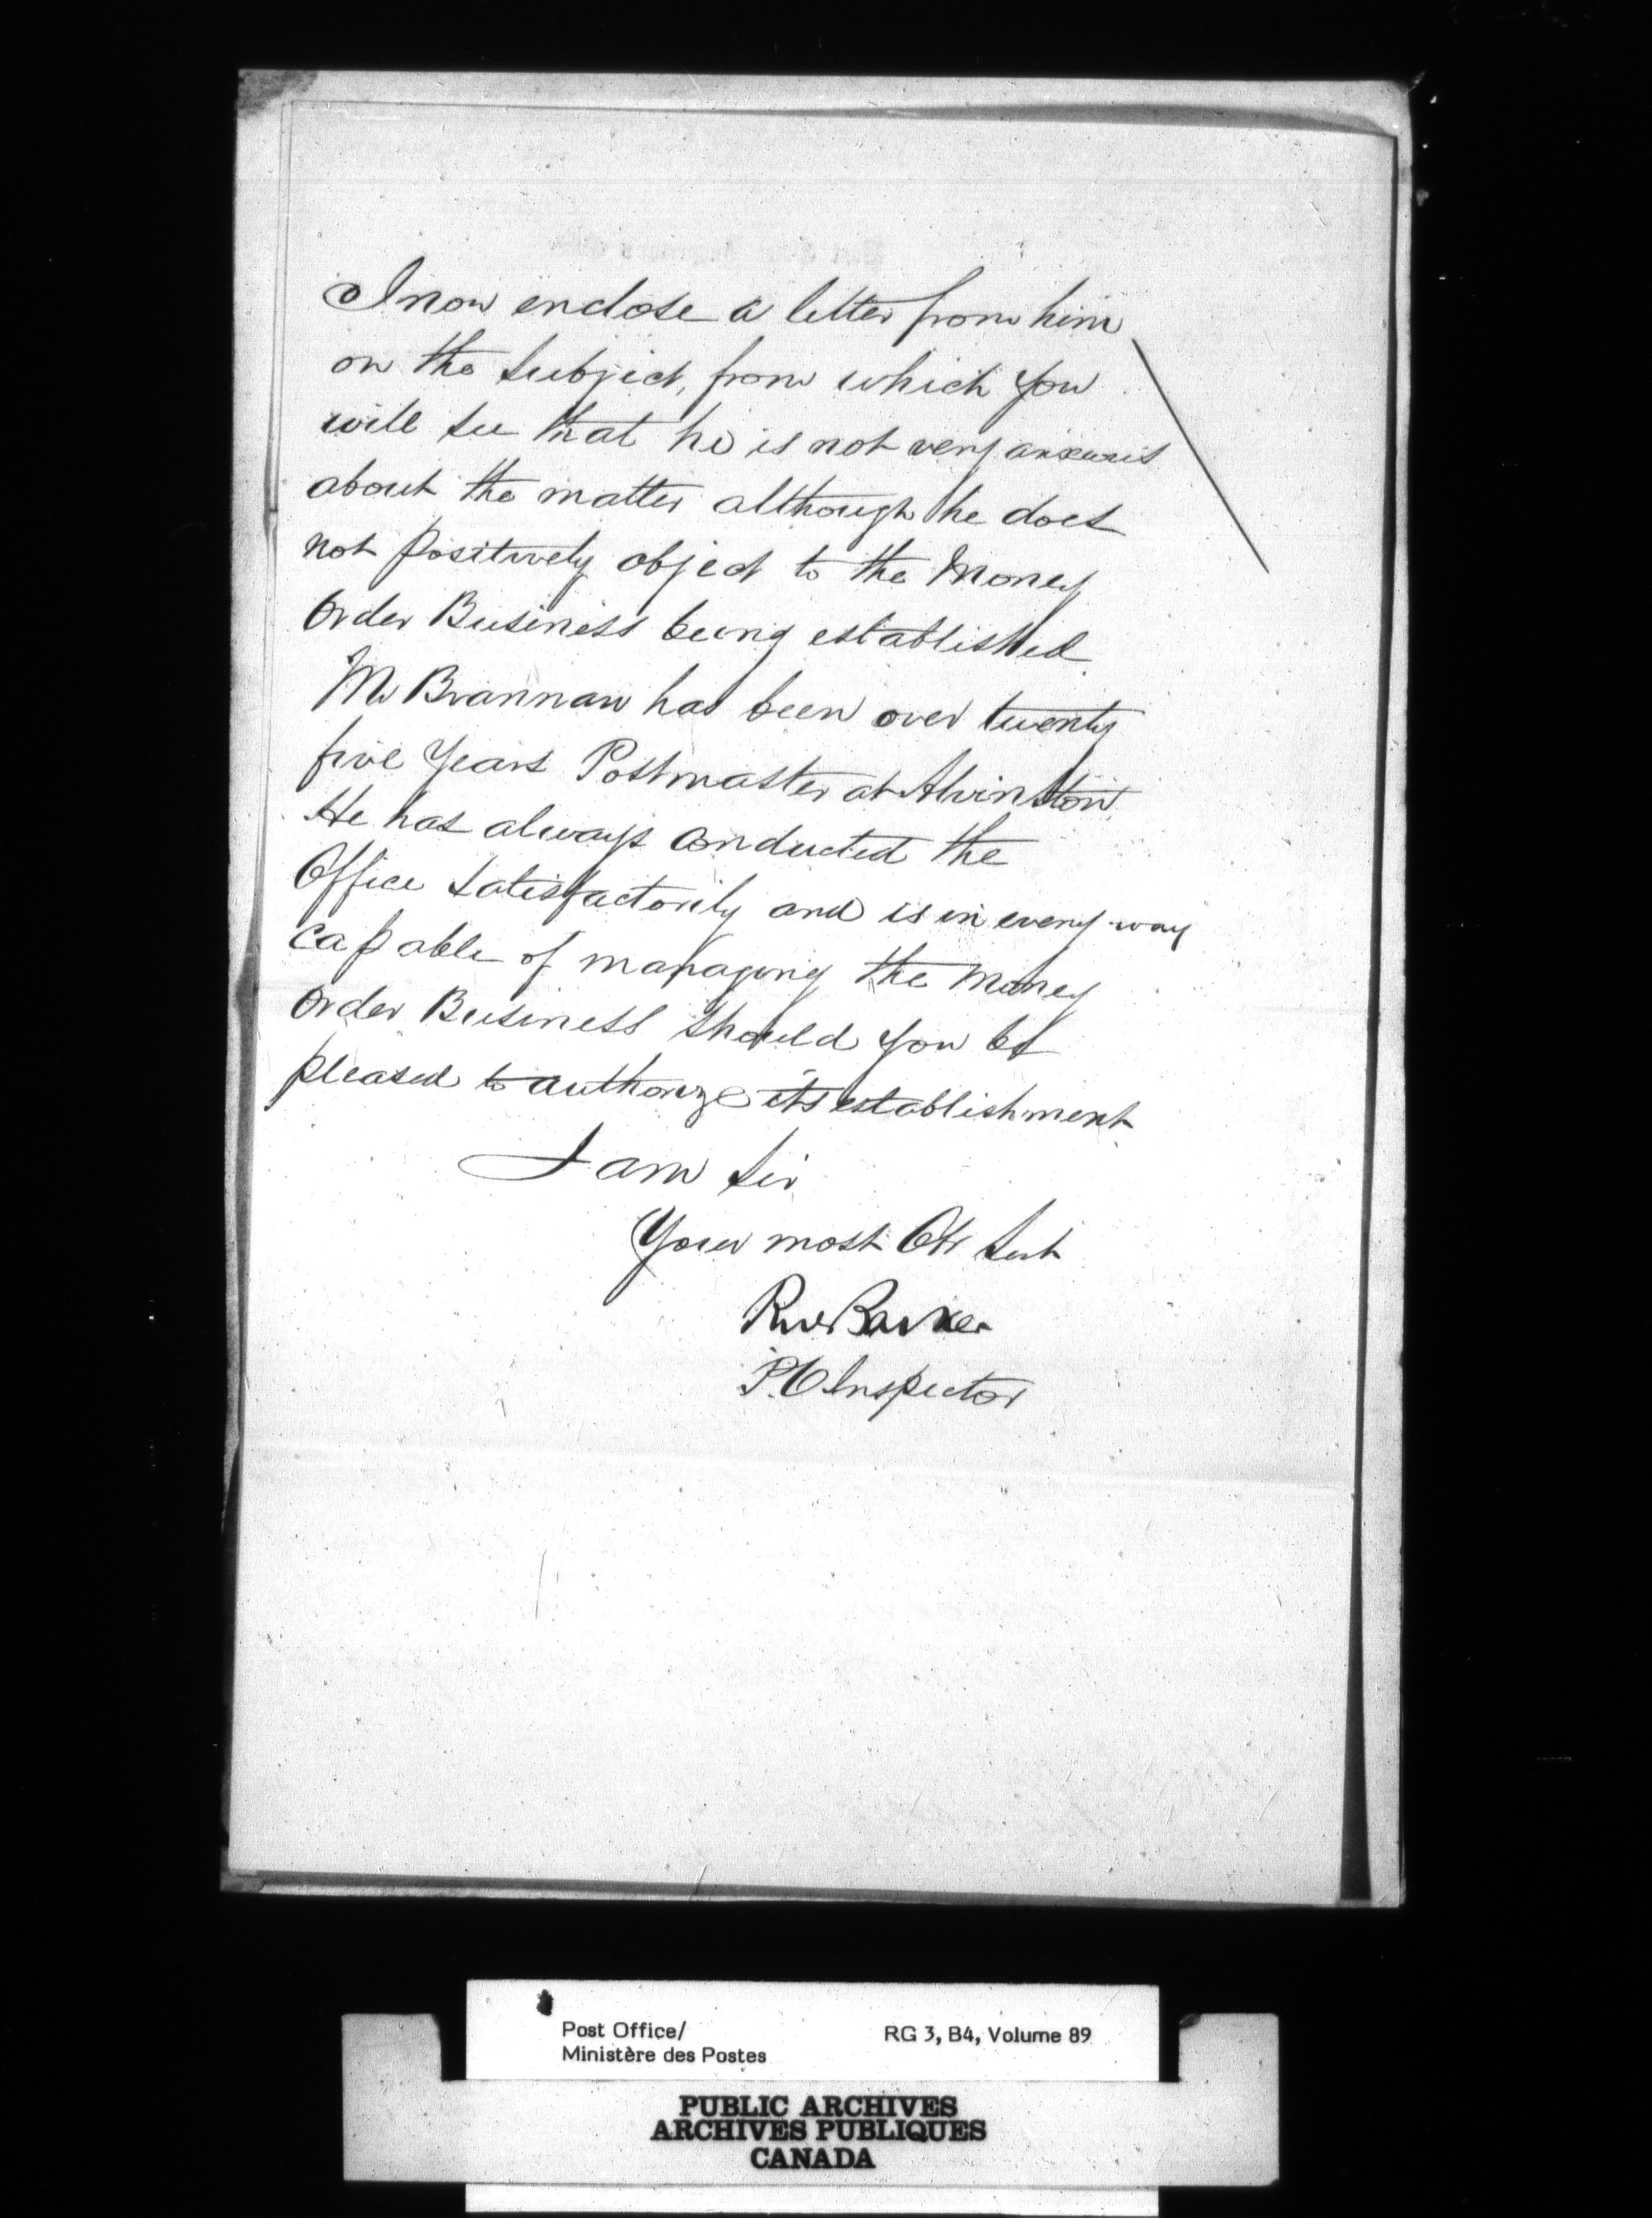 I now enclose a letter from him
on the subject, from which you
will see that he is not very anxious
about the matter although he does
not positively object to the Money
Order Business being established
Mr Brannan has been over twenty
five Years Postmaster at Alvinston
He has always conducted the
Office satisfactorily and is in every way
capable of managing the Money
Order Business should you be
pleased to authorize its establishment
I am Sir
Your most Obt Sert
RW Barker
P.O Inspector
Post Office/
Ministère des Postes
RG 3, B4, Volume 89
PUBLIC ARCHIVES
ARCHIVES PUBLIQUES
CANADA